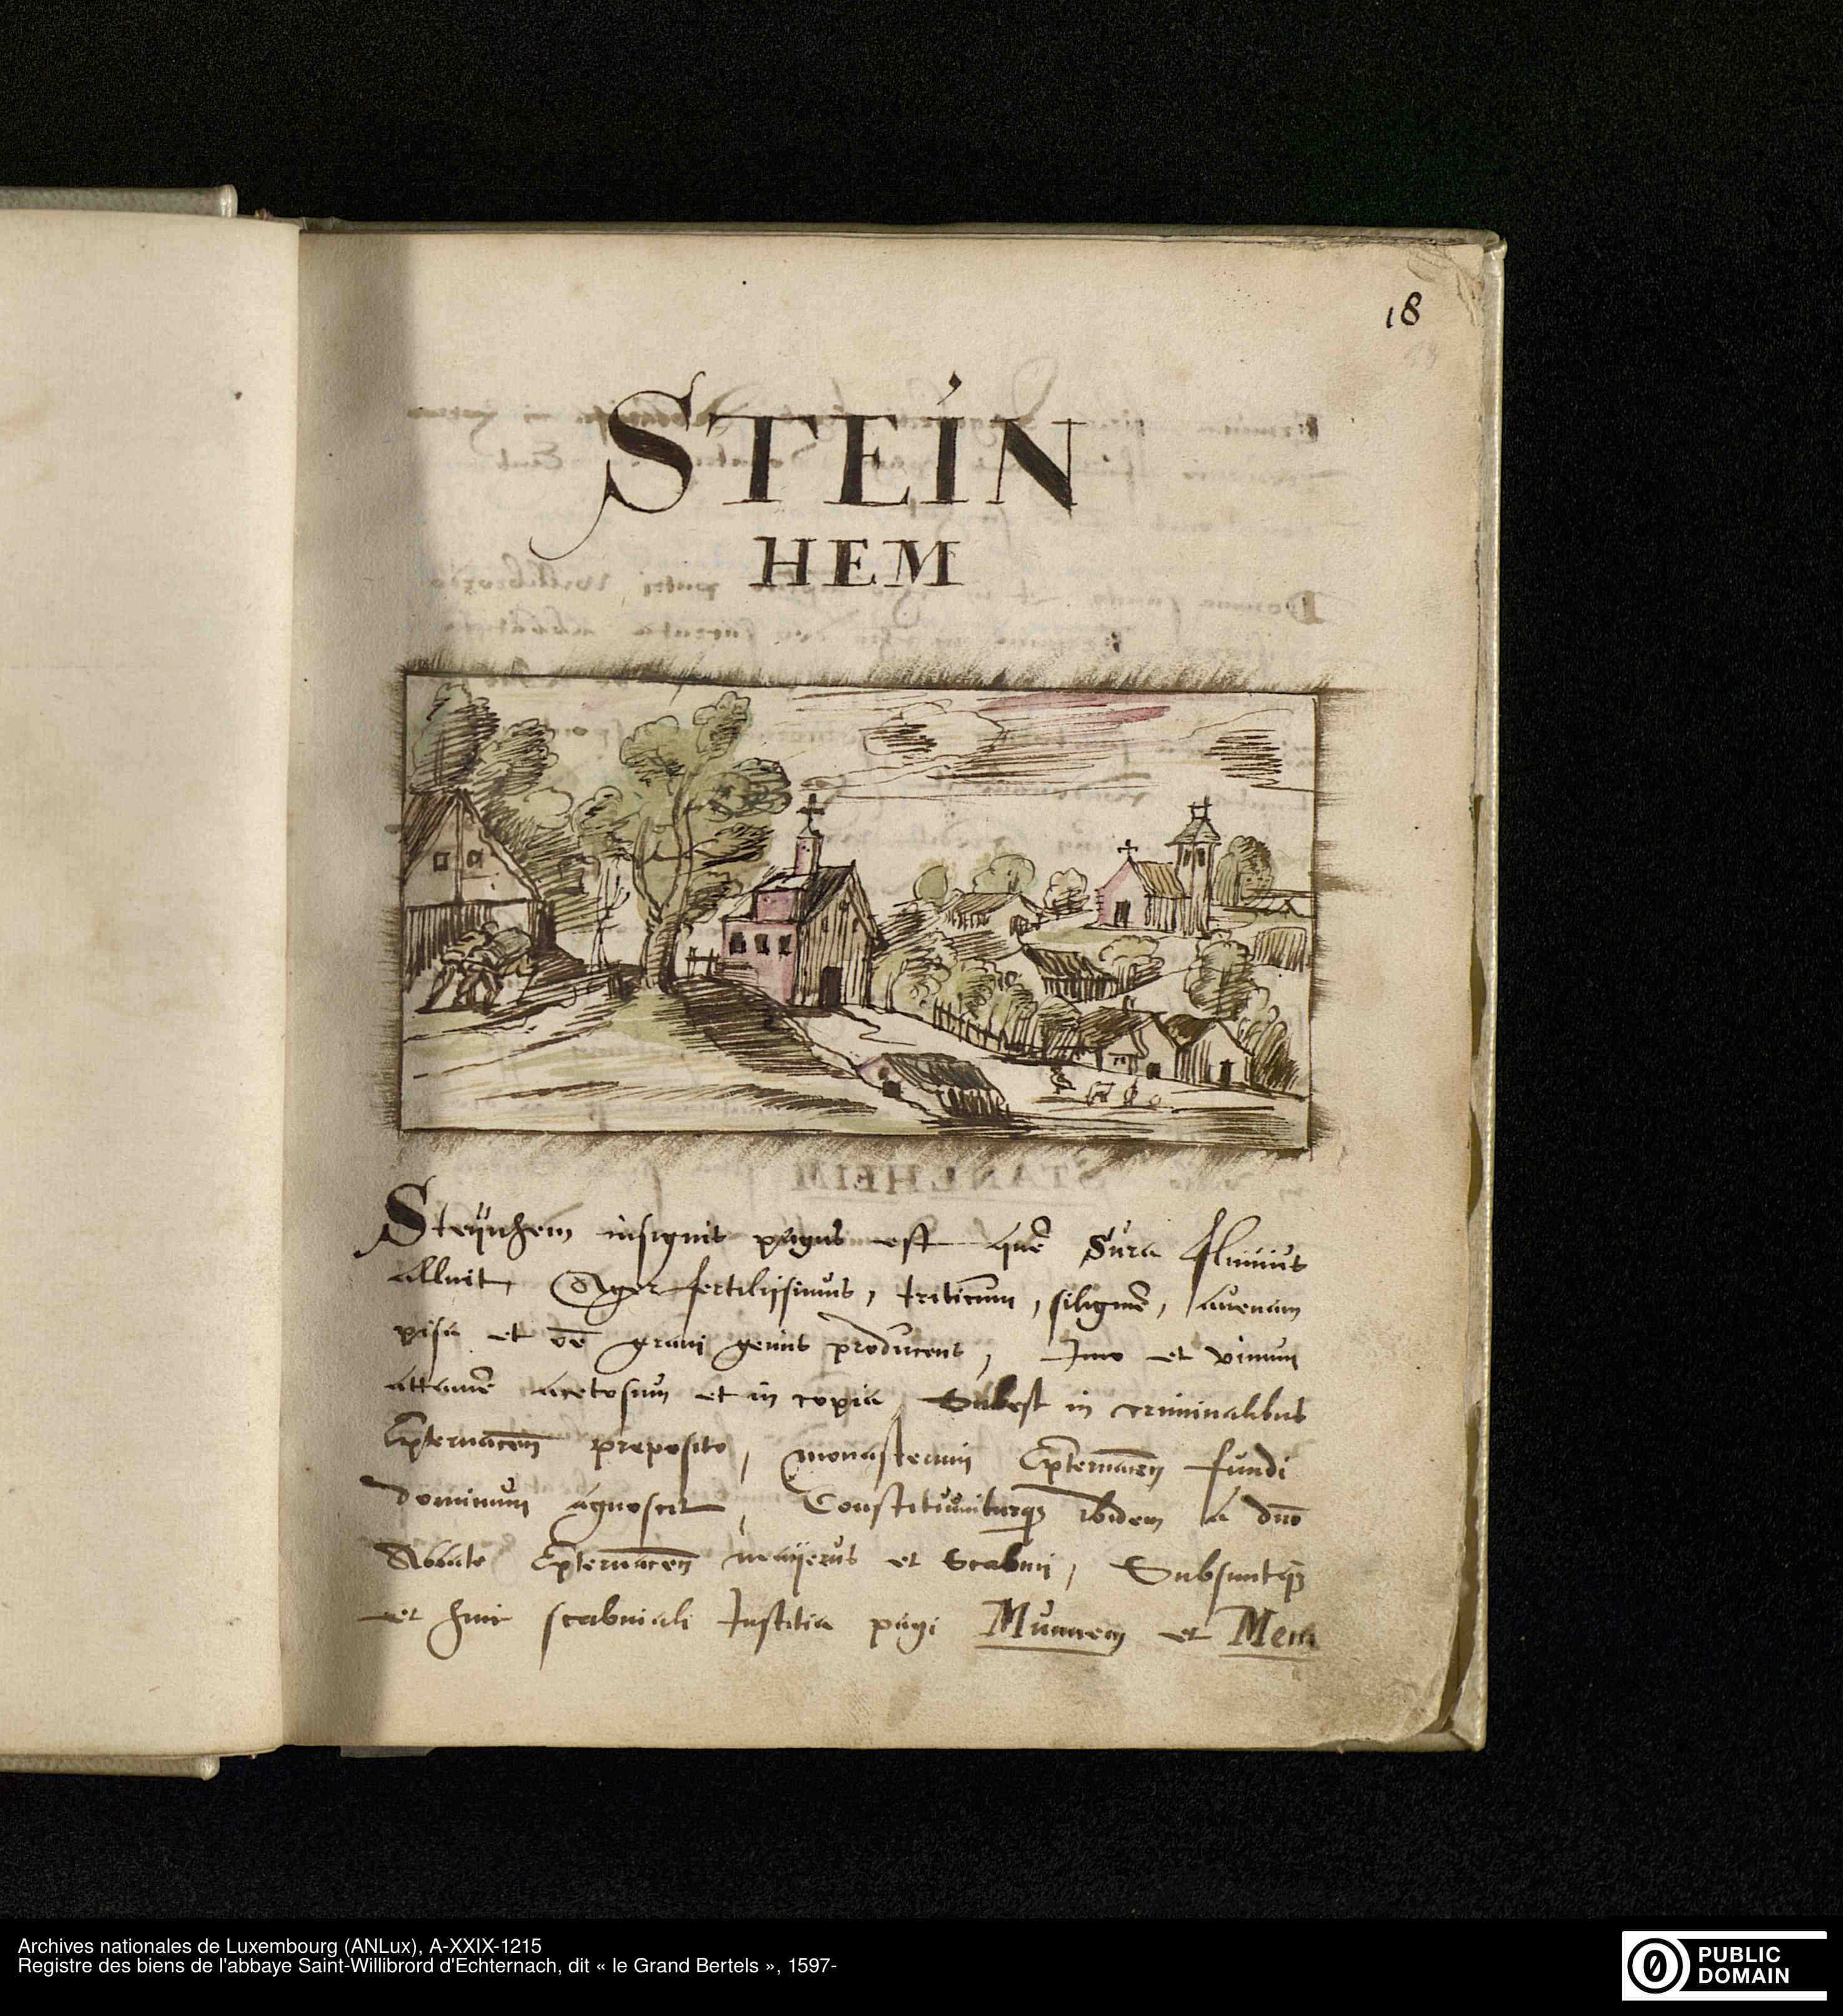 18
STEIN
HEM
Steÿnhem insignis pagus est quē Sura fluuius
alluit, Ager fertilissimus, triticum, siliginē, auenam
pisa et oē grani genus producens, Imo et vinum
attamē acetosum et in copia, Subest in criminalibus
Epternaceñ preposito, monasterium Epternaceñ fundi
dominum agnoscit, Constituuniturqȝ ibidem à dn̄o
Abbate Epternaceñ meÿerus et Scabini, Subsuntqȝ
et huic scabinali Iustitia pagi et
Archives nationales de Luxembourg (ANLux), A-XXIX-1215
Registre des biens de l'abbaye Saint-Willibrord d'Echternach, dit « le Grand Bertels », 1597-
PUBLIC
DOMAIN